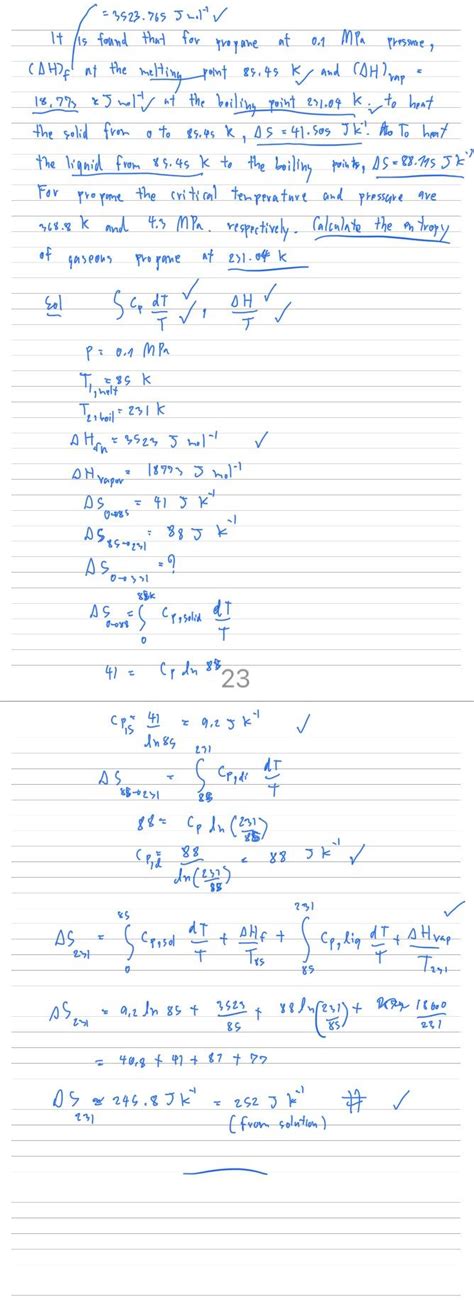 = 3523.765 J mol⁻¹ ✓
It is found that for propane at 0.1 MPa pressure,
(ΔH)f at the melting point 85.45 K ✓ and (ΔH)vap =
18.773 kJ mol⁻¹ ✓ at the boiling point 231.04 K. to heat
the solid from 0 to 85.45 K, ΔS = 41.505 J K⁻¹. To heat
the liquid from 85.45 K to the boiling point, ΔS = 88.795 J K⁻¹
For propane the critical temperature and pressure are
368.8 K and 4.3 MPa. respectively. Calculate the entropy
of gaseous propane at 231.04 K
Sol ∫ Cp dT/T ✓ ✓, ΔH/T ✓ ✓
P = 0.1 MPa
T1,melt = 85 K
T2,boil = 231 K
ΔHfn = 3523 J mol⁻¹ ✓
ΔHvapor = 18773 J mol⁻¹
ΔS0→85 = 41 J K⁻¹
ΔS85→231 = 88 J K⁻¹
ΔS0→331 = ?
ΔS0→88 = ∫₀^88K Cp,solid dT/T
41 = Cp ln 88
23
Cp,s = 41/ln 85 = 9.2 J K⁻¹ ✓
ΔS85→231 = ∫₈₅^231 Cp,li dT/T
88 = Cp ln (231/85)
Cp,l = 88/ln(231/85) = 88 J K⁻¹ ✓
ΔS231 = ∫₀^85 Cp,sol dT/T + ΔHf/T85 + ∫₈₅^231 Cp,liq dT/T + ΔHvap/T231 ✓
ΔS231 = 9.2 ln 85 + 3523/85 + 88 ln(231/85) + 18600/231
= 40.8 + 41 + 87 + 77
ΔS231 ≈ 245.8 J K⁻¹ = 252 J K⁻¹ # ✓
(from solution)